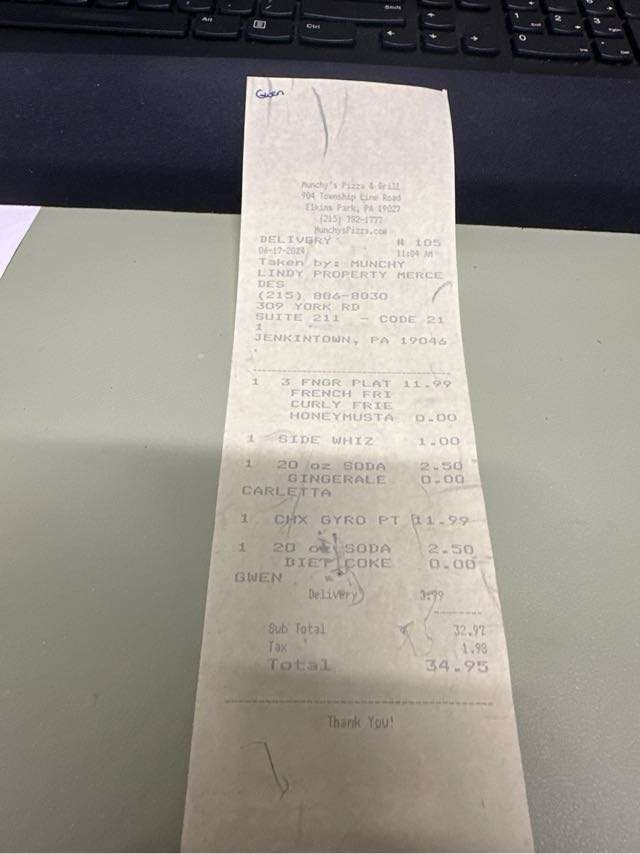 Gwen
Munchy's Pizza & Grill
904 Township Line Road
Elkins Park, PA 19027
(215) 782-1777
MunchysPizza.com
DELIVERY # 105
06-17-2024 11:04 AM
Taken by: MUNCHY
LINDY PROPERTY MERCE
DES
(215) 886-8030
309 YORK RD
SUITE 211 - CODE 21
1
JENKINTOWN, PA 19046
1 3 FNGR PLAT 11.99
FRENCH FRI
CURLY FRIE
HONEYMUSTA 0.00
1 SIDE WHIZ 1.00
1 20 oz SODA 2.50
GINGERALE 0.00
CARLETTA
1 CHX GYRO PT 11.99
1 20 oz SODA 2.50
DIET COKE 0.00
GWEN
Delivery 3.99
Sub Total 32.97
Tax 1.98
Total 34.95
Thank You!
Shift
Alt
Ctrl
1
2
3
0